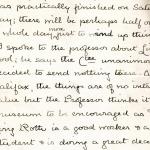 was practically finished on Sat
day; there will be perhaps half
whole day just to send up thin
I spoke to the professor about
ool; he says the Ctee unanimou
decided to send nothing there.
alifax, the things are of no int
alue but the Professor thinks it
museum to be encouraged as
ny Roth is a good maker & a
student & is doing a great de